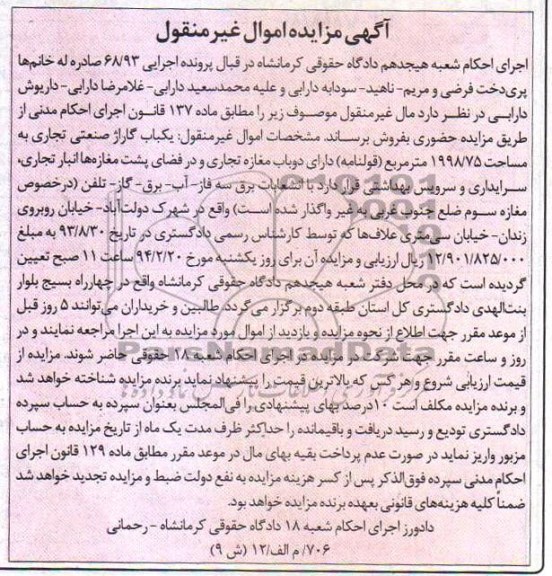 آگهی مزایده اموال غیر منقول
اجرای احکام شعبه هیجدهم دادگاه حقوقی کرمانشاه در قبال پرونده اجرایی ۶۸/۹۳ صادره له خانم‌ها
پری‌دخت فرضی و مریم- ناهید- سودابه دارابی و علیه محمدسعید دارابی- غلامرضا دارابی- داریوش
دارابی در نظر دارد مال غیرمنقول موصوف زیر را مطابق ماده ۱۳۷ قانون اجرای احکام مدنی از
طریق مزایده حضوری بفروش برساند. مشخصات اموال غیرمنقول: یکباب گاراژ صنعتی تجاری به
مساحت ۱۹۹۸/۷۵ مترمربع (قولنامه) دارای دوباب مغازه تجاری و در فضای پشت مغازه‌ها انبار تجاری،
سرایداری و سرویس بهداشتی قرار دارد با انشعابات برق سه فاز- آب- برق- گاز- تلفن (درخصوص
مغازه سوم ضلع جنوب غربی به غیر واگذار شده است) واقع در شهرک دولت‌آباد- خیابان روبروی
زندان- خیابان سی‌متری علاف‌ها که توسط کارشناس رسمی دادگستری در تاریخ ۹۳/۸/۳۰ به مبلغ
۱۲/۹۰۱/۸۲۵/۰۰۰ ریال ارزیابی و مزایده آن برای روز یکشنبه مورخ ۹۴/۲/۲۰ ساعت ۱۱ صبح تعیین
گردیده است که در محل دفتر شعبه هیجدهم دادگاه حقوقی کرمانشاه واقع در چهارراه بسیج بلوار
بنت‌الهدی دادگستری کل استان طبقه دوم برگزار می‌گردد. طالبین و خریداران می‌توانند ۵ روز قبل
از موعد مقرر جهت اطلاع از نحوه مزایده و بازدید از اموال مورد مزایده به این اجرا مراجعه نمایند و در
روز و ساعت مقرر جهت شرکت در مزایده در اجرای احکام شعبه ۱۸ حقوقی حاضر شوند. مزایده از
قیمت ارزیابی شروع و هر کس که بالاترین قیمت را پیشنهاد نماید برنده مزایده شناخته خواهد شد
و برنده مزایده مکلف است ۱۰درصد بهای پیشنهادی را فی‌المجلس بعنوان سپرده به حساب سپرده
دادگستری تودیع و رسید دریافت و باقیمانده را حداکثر ظرف مدت یک ماه از تاریخ مزایده به حساب
مزبور واریز نماید در صورت عدم پرداخت بقیه بهای مال در موعد مقرر مطابق ماده ۱۲۹ قانون اجرای
احکام مدنی سپرده فوق‌الذکر پس از کسر هزینه مزایده به نفع دولت ضبط و مزایده تجدید خواهد شد
ضمناً کلیه هزینه‌های قانونی بعهده برنده مزایده خواهد بود.
دادورز اجرای احکام شعبه ۱۸ دادگاه حقوقی کرمانشاه - رحمانی
۷۰۶/ م الف/۱۲ (ش ۹)
ParsNamadData